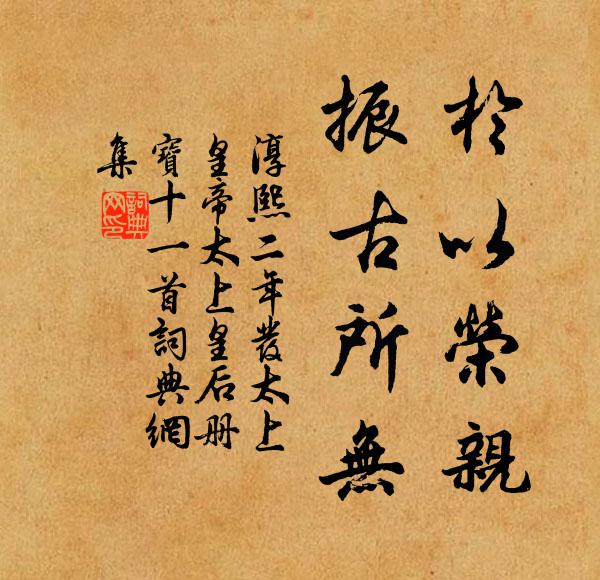 於以榮親
振古所無
淳熙二年發太上
皇帝太上皇后册
寶十一首詞典網
集
詞典網印